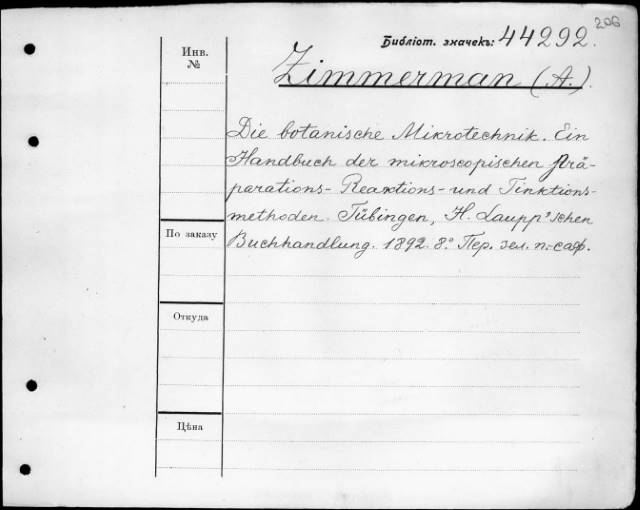 206
Библіот. значекъ: 44292.
Инв.
№
Zimmerman (A.).
Die botanische Mikrotechnik. Ein
Handbuch der mikroscopischen Prä-
parations- Reaktions- und Tinktions-
methoden. Tübingen, H. Laupp'schen
По заказу
Buchhandlung. 1892. 8° Пер. зел. п.-саф.
Откуда
Цѣна